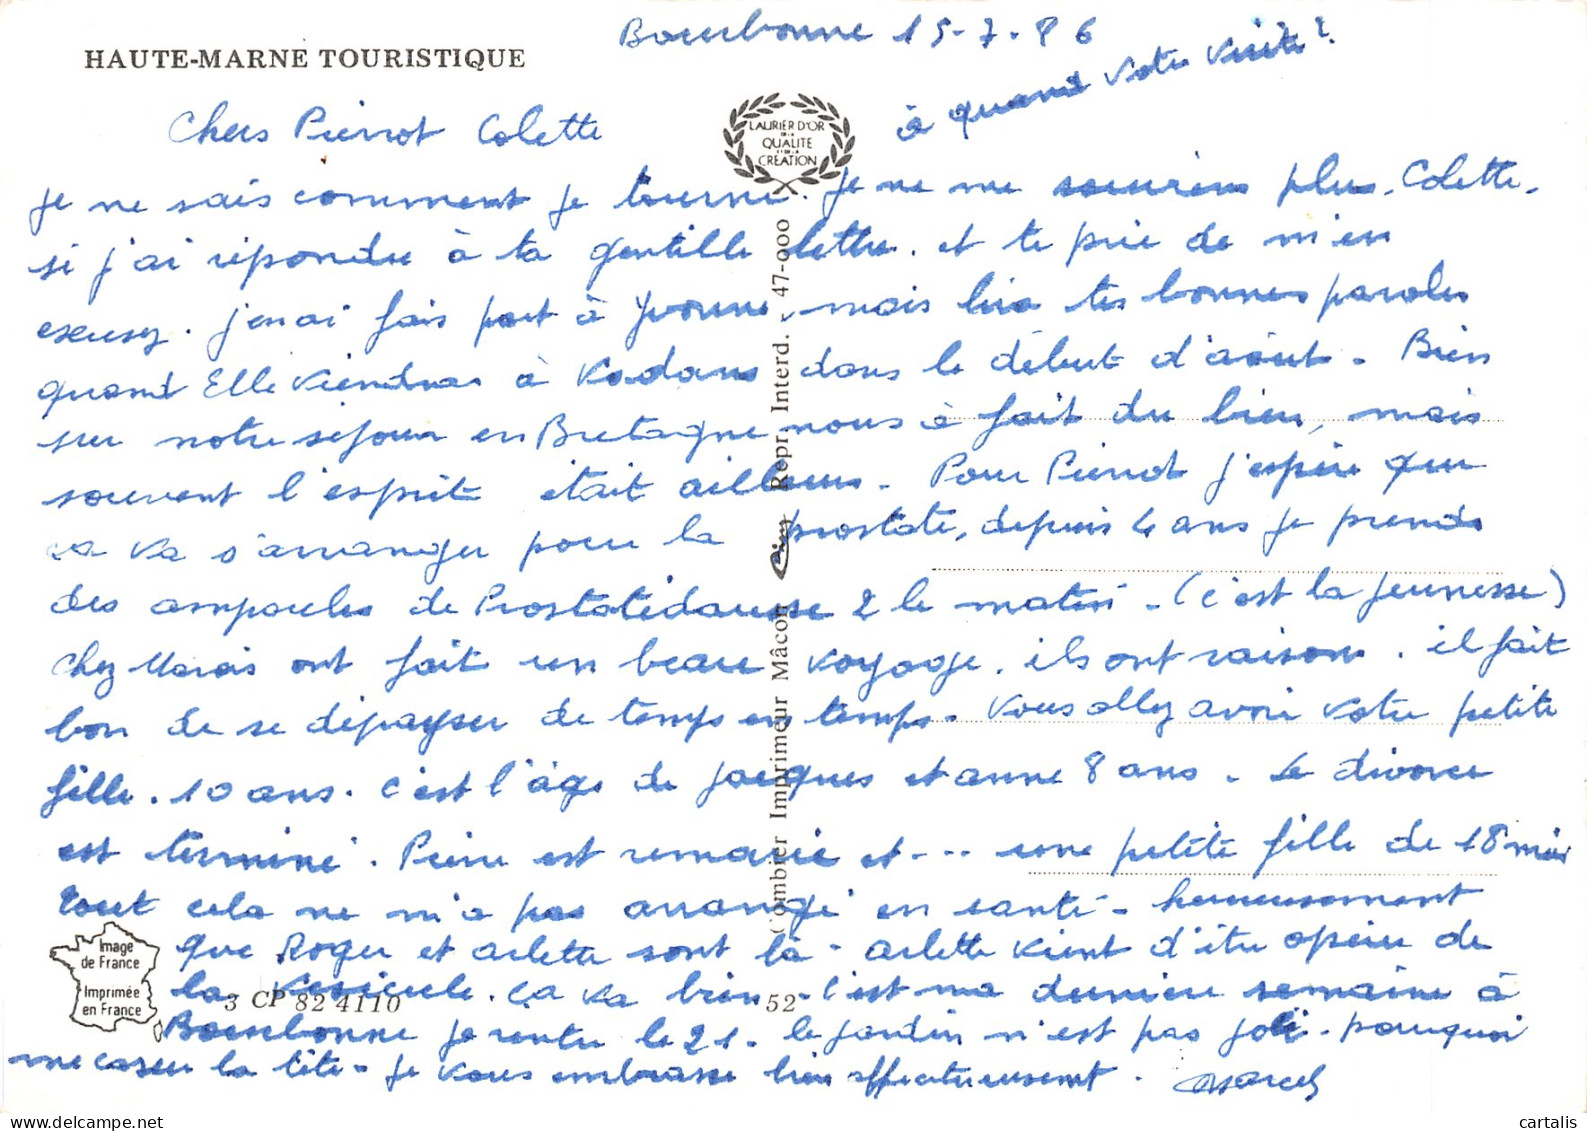 HAUTE-MARNE TOURISTIQUE
Bourbonne 15-7-86
à quand votre visite ?
Chers Pierrot Colette
LAURIER D'OR
DE LA
QUALITE
ET DE LA
CREATION
je ne sais comment je tourne. Je ne me souviens plus. Colette.
si j'ai répondu à ta gentille lettre. et te prie de m'en
excusez. j'en ai fais part à Yvonne, mais lira tes bonnes paroles
quand Elle viendra à dans le début d'août. Bien
sur notre séjour en Bretagne nous à fait du bien, mais
souvent l'esprit était ailleurs. Pour Pierrot j'espère que
ça va s'arranger pour la prostate, depuis 4 ans je prends
des ampoules de 2 le matin - (c'est la jeunesse)
Chez Marais ont fait un beau voyage. ils ont raison. il fait
bon de se dépayser de temps en temps. Vous allez avoir votre petite
fille. 10 ans. c'est l'âge de Jacques et anne 8 ans. Le divorce
est terminé. Pierre est remarié et --- une petite fille de 18 mois
Tout cela ne m'a pas arrangé en santé - heureusement
que Roger et arlette sont là - arlette vient d'être opérée de
la vésicule. ça va bien - c'est ma dernière semaine à
Bourbonne je rentre le 21. le jardin n'est pas joli. pourquoi
me casser la tête - je vous embrasse bien affectueusement. Marcel
Image
de France
Imprimée
en France
3 CP 82 4110
52
Combier Imprimeur Mâcon Cim Repr. Interd. - 47-000
cartalis